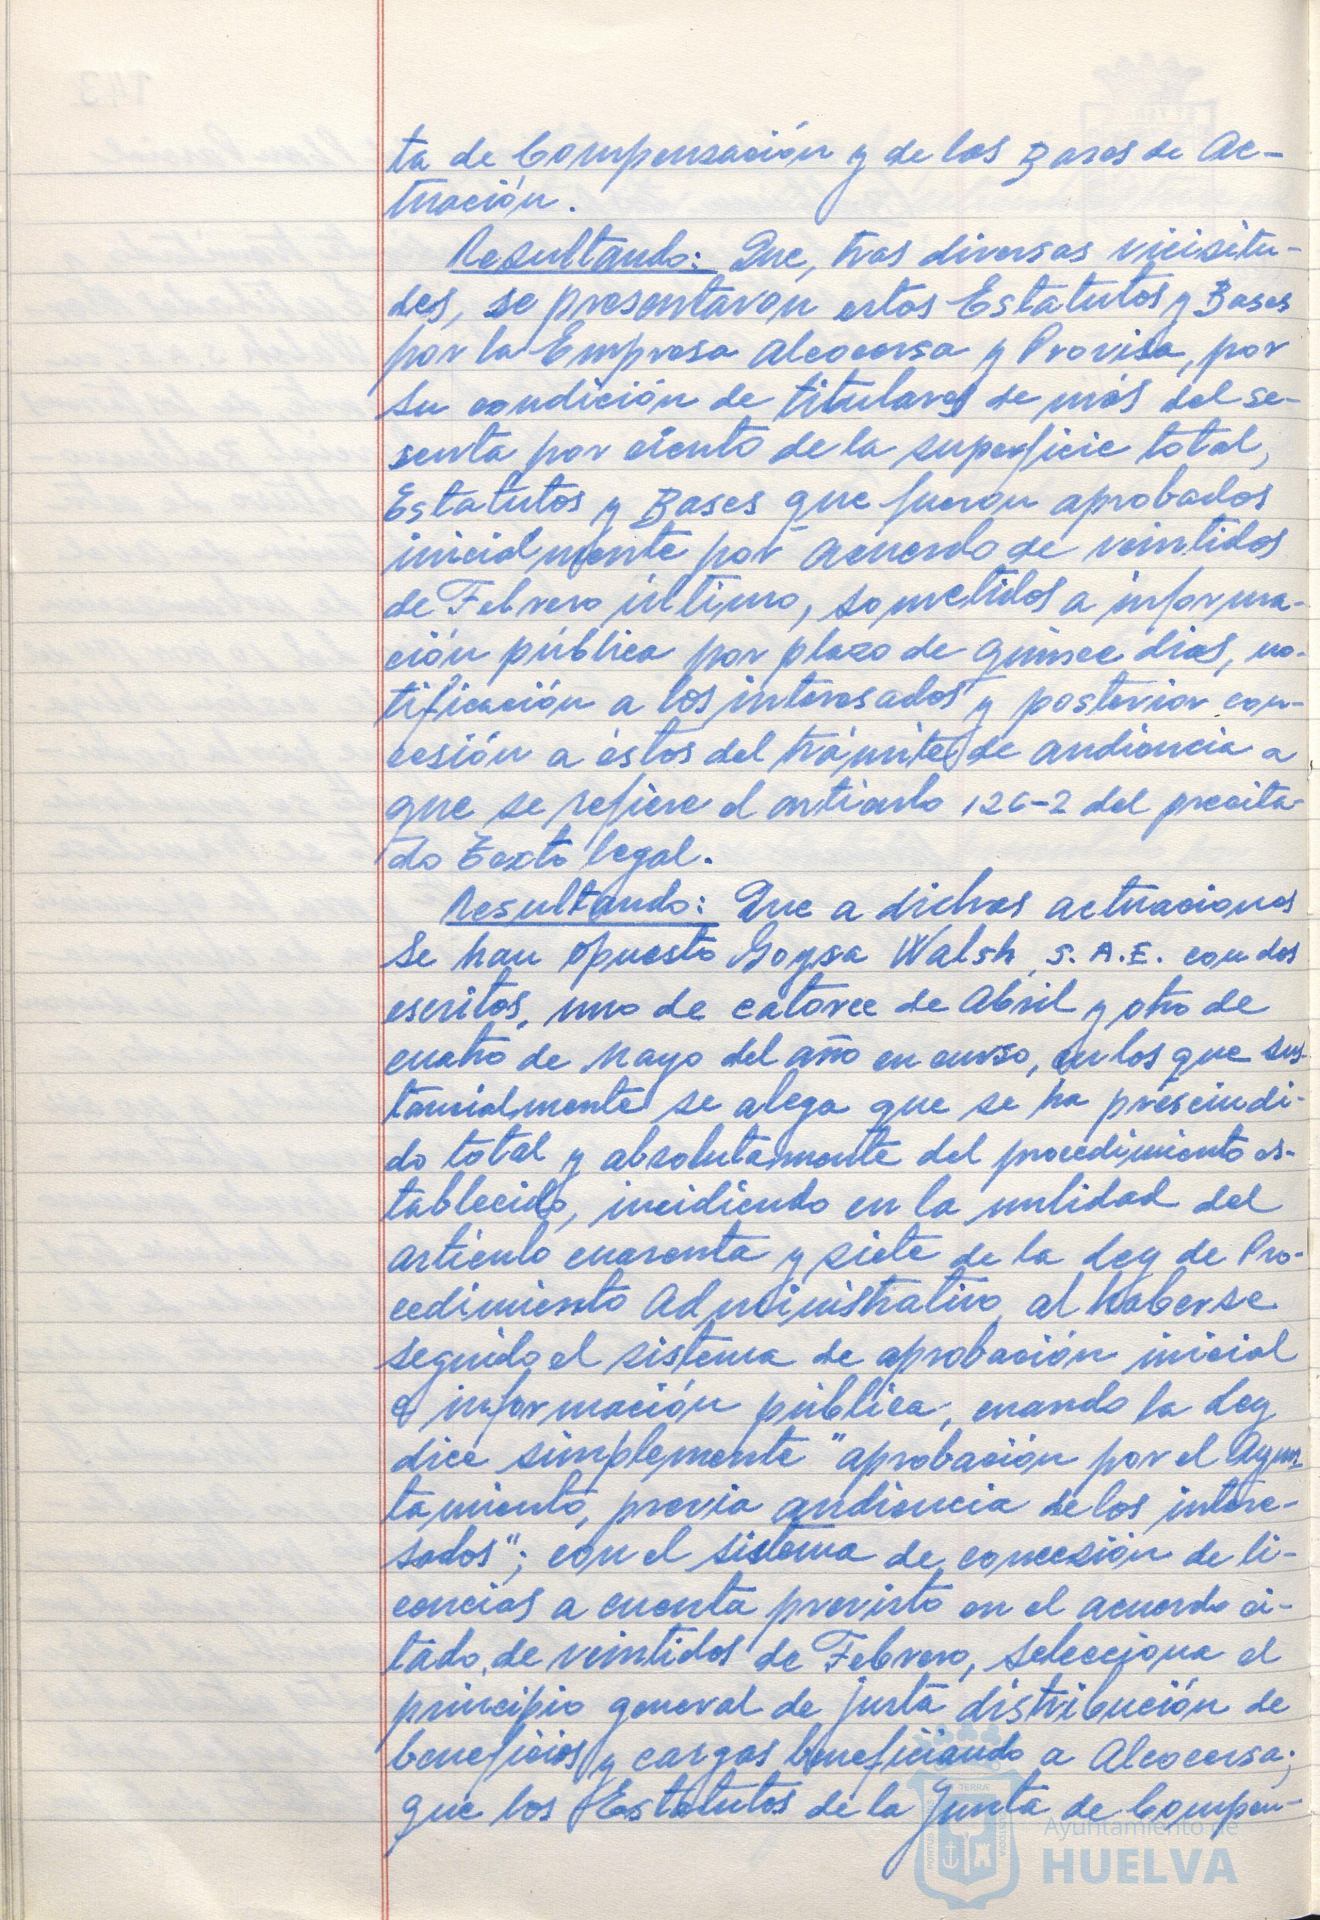 ta de Compensación y de las Bases de Ac-
tuación.
Resultando: Que, tras diversas vicisitu-
des, se presentaron estos Estatutos y Bases
por la Empresa Alcocersa y Provisa, por
su condición de titulares de más del se-
senta por ciento de la superficie total,
Estatutos y Bases que fueron aprobados
inicialmente por acuerdo de veintidos
de Febrero último, sometidos a informa-
ción pública por plazo de quince dias, no-
tificación a los interesados y posterior con-
cesión a éstos del trámite de audiencia a
que se refiere el articulo 126-2 del precita-
do Texto legal.
Resultando: Que a dichas actuaciones
se han opuesto Goysa Walsh, S.A.E. con dos
escritos, uno de catorce de Abril y otro de
cuatro de Mayo del año en curso, en los que sus-
tancialmente se alega que se ha prescindi-
do total y absolutamente del procedimiento es-
tablecido, incidiendo en la nulidad del
articulo cuarenta y siete de la Ley de Pro-
cedimiento Administrativo, al haberse
seguido el sistema de aprobación inicial
e información pública, cuando la Ley
dice simplemente "aprobación por el Ayun-
tamiento, previa audiencia de los intere-
sados"; con el sistema de concesión de li-
cencias a cuenta previsto en el acuerdo ci-
tado, de veintidos de Febrero, selecciona el
principio general de justa distribución de
beneficios y cargas beneficiando a Alcocersa;
que los Estatutos de la Junta de Compen-
Ayuntamiento de
HUELVA